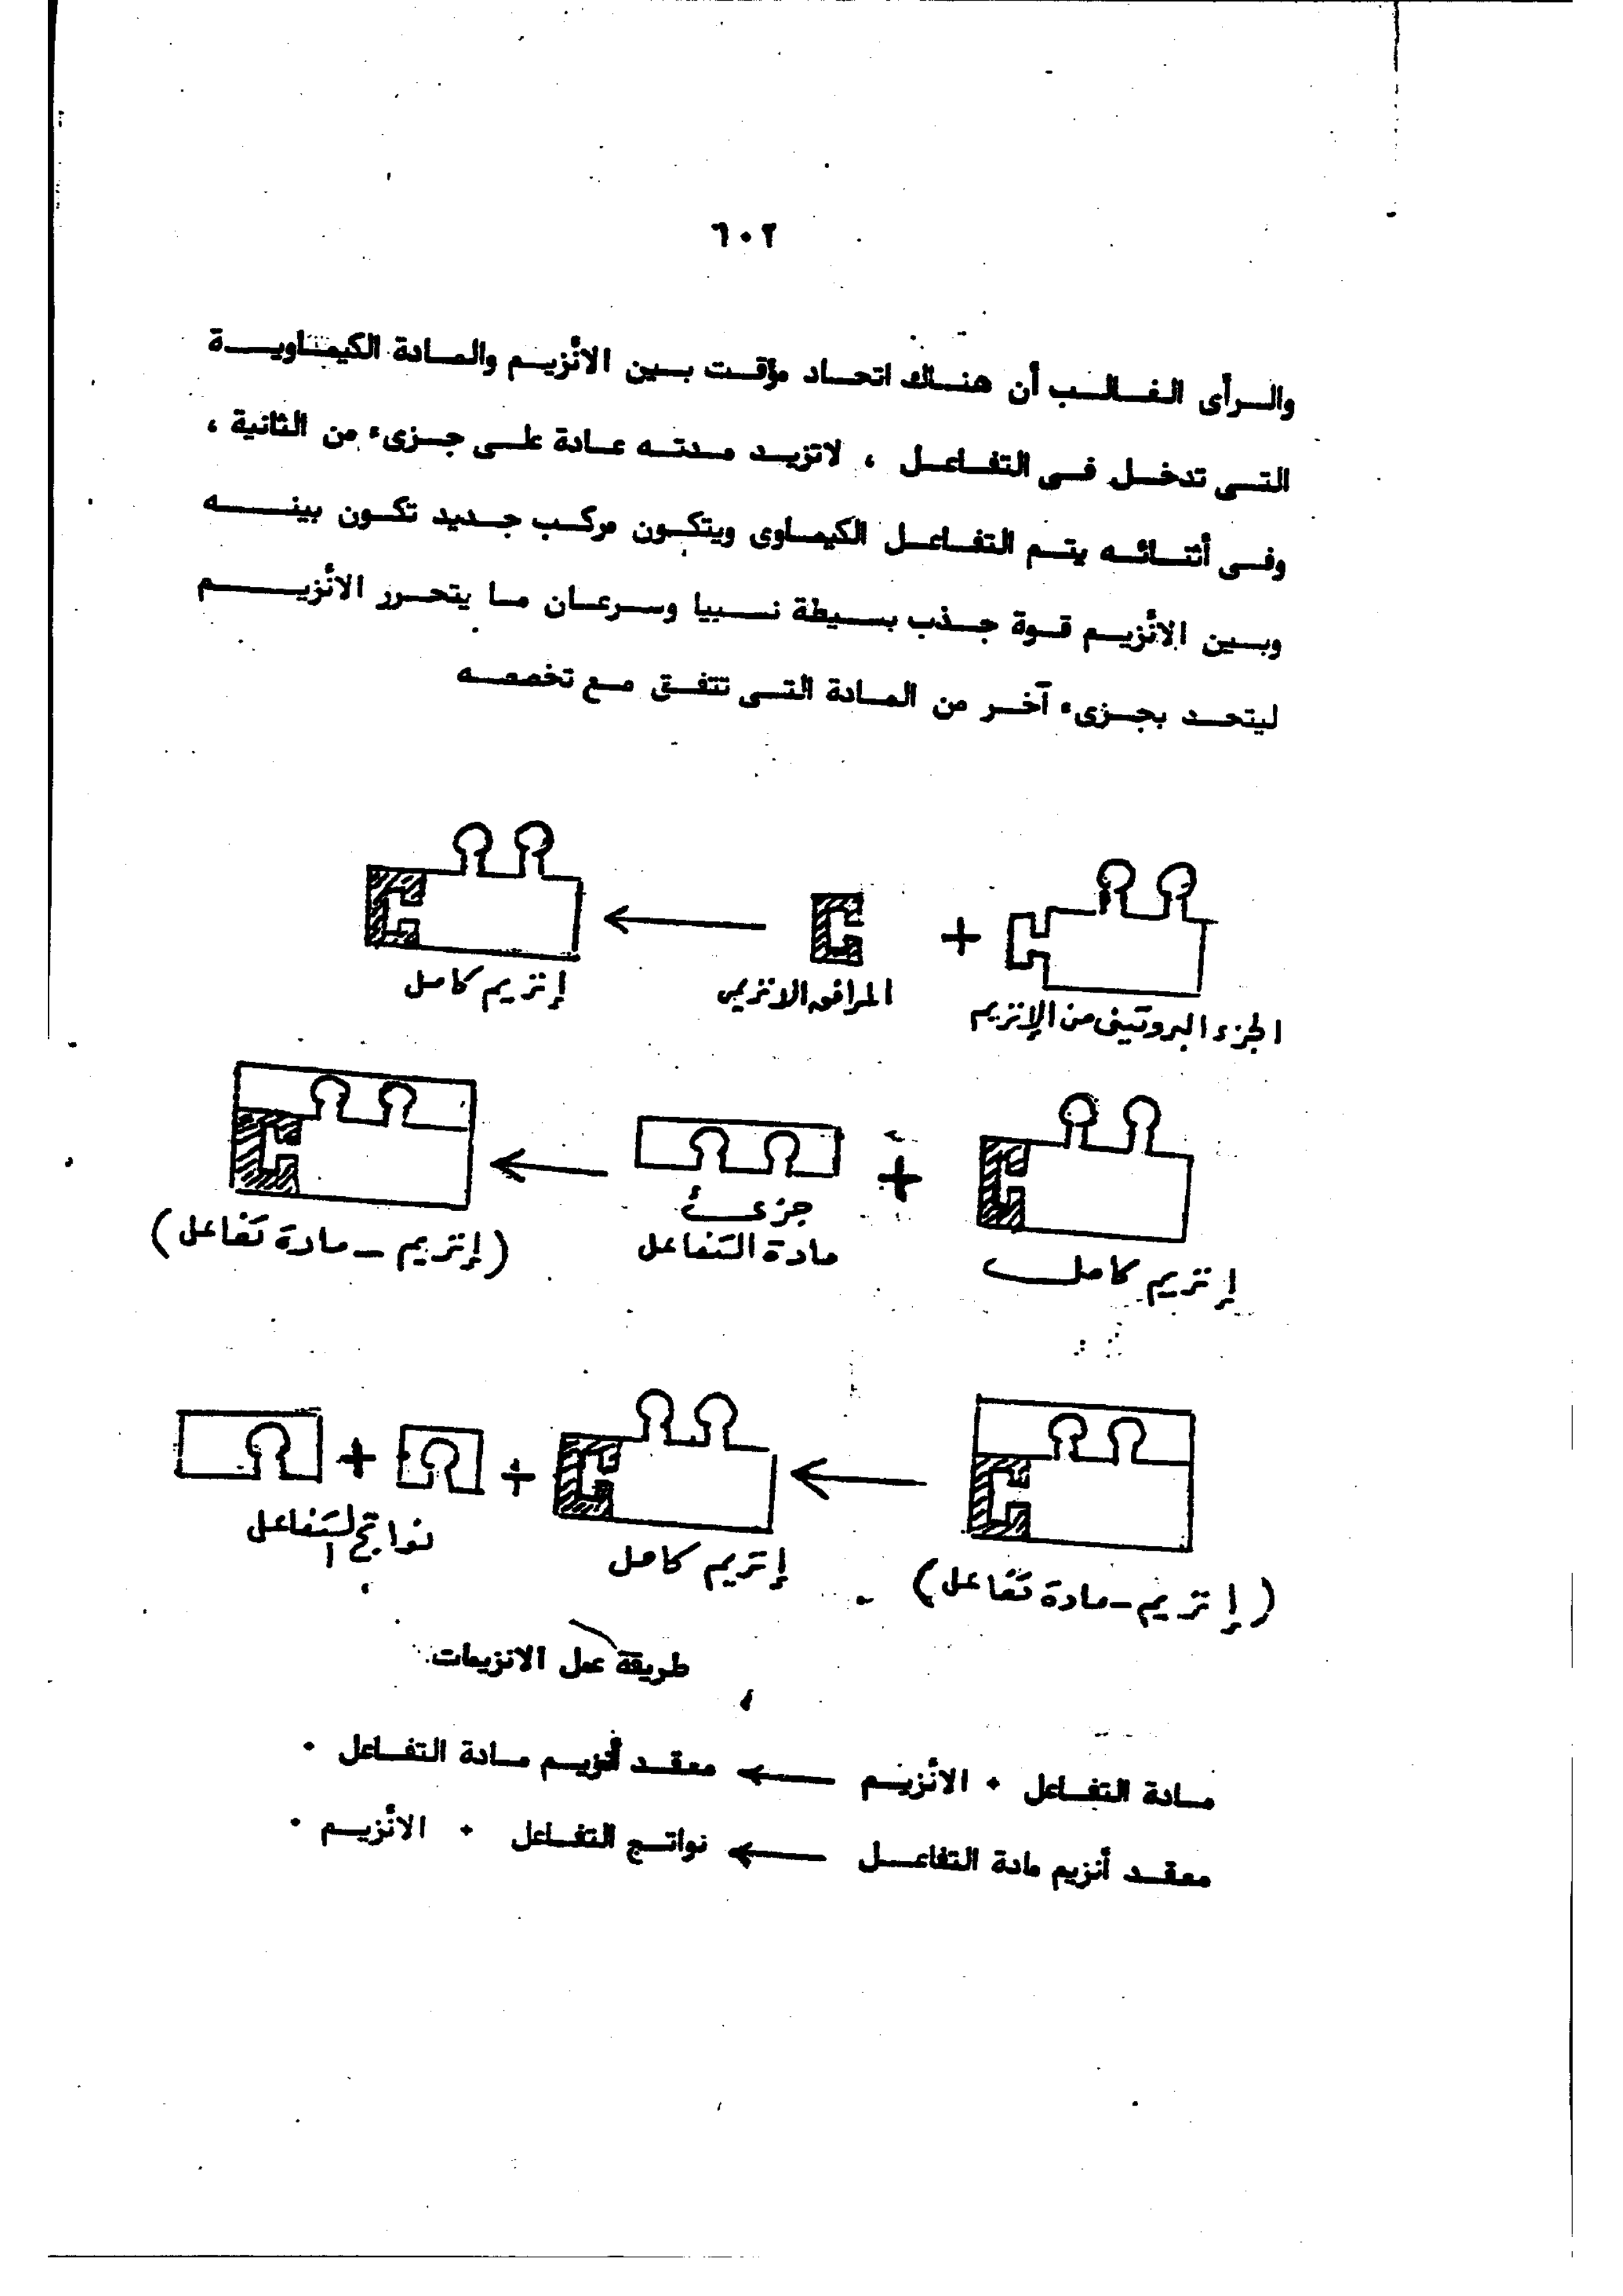 ٦٠٢
والرأى الغالب أن هناك اتحاد مؤقت بين الأنزيم والمادة الكيماوية
التى تدخل فى التفاعل ، لاتزيد مدته عادة على جزىء من الثانية ،
وفى أثنائه يتم التفاعل الكيماوى ويتكون مركب جديد تكون بينه
وبين الأنزيم قوة جذب بسيطة نسبيا وسرعان ما يتحرر الأنزيم
ليتحد بجزىء آخر من المادة التى تتفق مع تخصصه
+
الجزء البروتينى من الإنزيم المرافق الانزيمي إنزيم كامل
+
إنزيم كامل جزئ (إنزيم - مادة تفاعل)
مادة التفاعل
+ +
(إنزيم - مادة تفاعل) إنزيم كامل نواتج التفاعل
طريقة عمل الانزيمات
مادة التفاعل + الأنزيم ← معقد أنزيم مادة التفاعل ٠
معقد أنزيم مادة التفاعل ← نواتج التفاعل + الأنزيم ٠